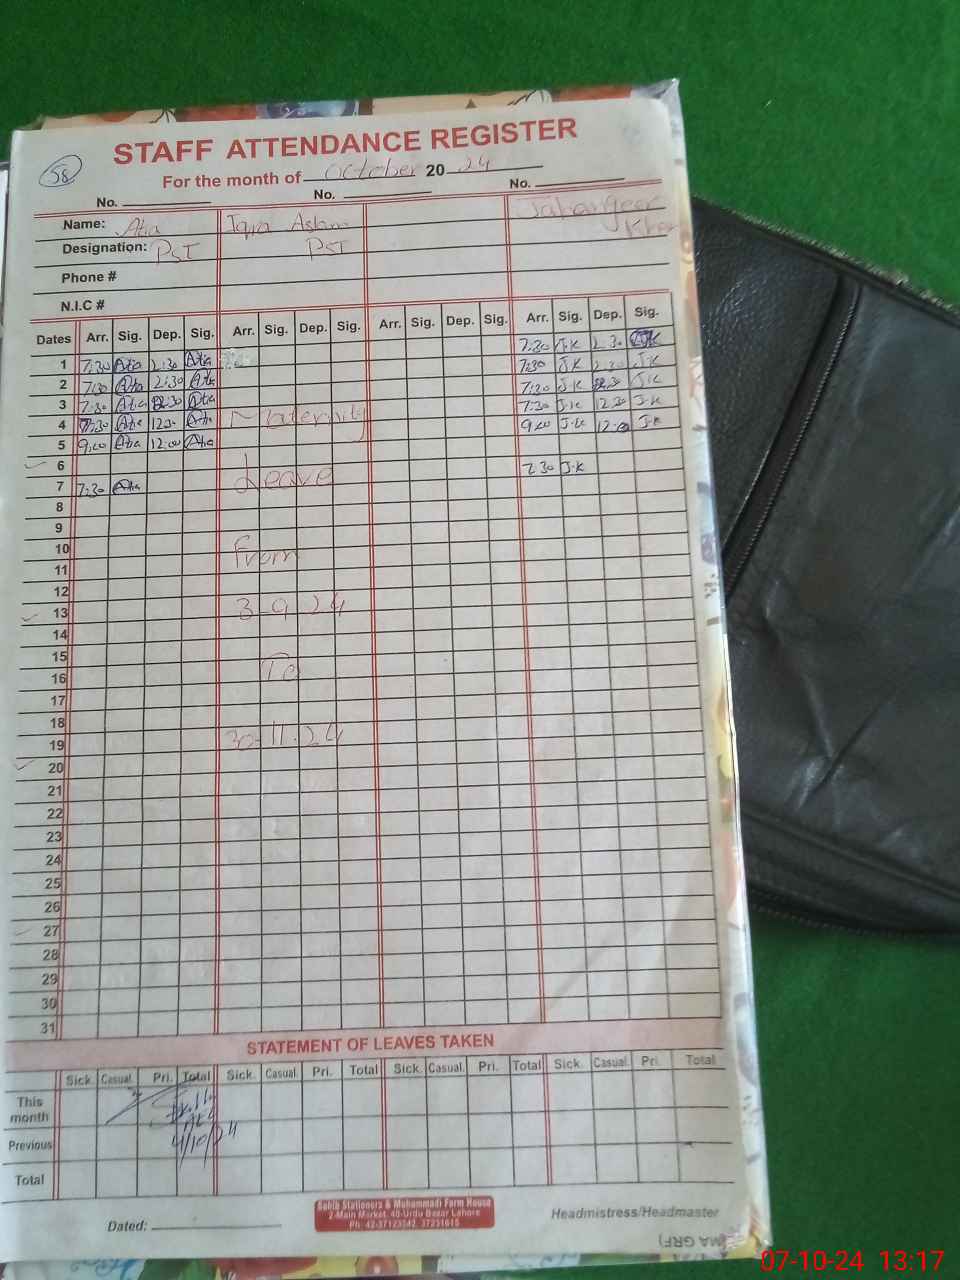 58
STAFF ATTENDANCE REGISTER
For the month of October 20 24
No. No. No.
Name: Atia Iqra Aslam Jahangeer Khan
Designation: PST PST
Phone #
N.I.C #
Dates Arr. Sig. Dep. Sig. Arr. Sig. Dep. Sig. Arr. Sig. Dep. Sig. Arr. Sig. Dep. Sig.
1 7:30 Atia 2:30 Atia 7:30 J.K 2:30 JK
2 7:30 Atia 2:30 Atia 7:30 J.K 2:30 J.K
3 7:30 Atia 2:30 Atia 7:30 J.K 2:30 J.K
4 7:30 Atia 12:30 Atia Maternity 7:30 J.K 12:30 J.K
5 9:00 Atia 12:00 Atia 9:00 J.K 12:00 J.K
6 Leave
7 7:30 Atia 7:30 J.K
8
9
10 From
11
12
13 3-9-24
14
15
16 To
17
18
19 30-11-24
20
21
22
23
24
25
26
27
28
29
30
31
STATEMENT OF LEAVES TAKEN
Sick. Casual. Pri. Total Sick. Casual. Pri. Total Sick. Casual. Pri. Total Sick. Casual. Pri. Total
This month
4/10/24
Previous
Total
Sahib Stationers & Muhammadi Farm House
2-Main Market, 40-Urdu Bazar Lahore
Ph: 42-37123542, 37231615
Dated: Headmistress/Headmaster
(MA GRF)
07-10-24 13:17